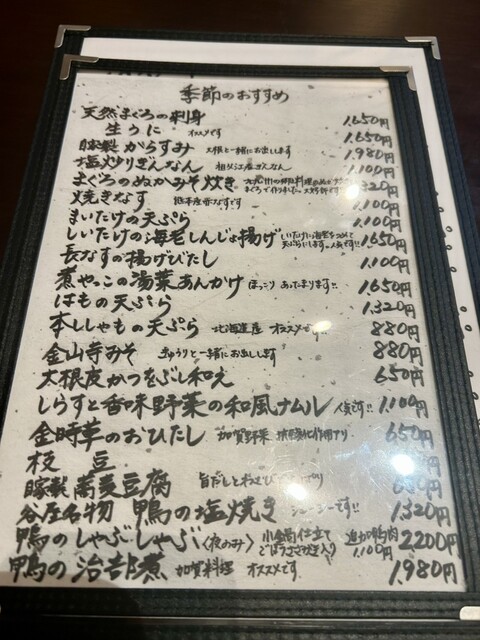 季節のおすすめ
天然まぐろの刺身 1,650円
生うに オススメです 1,650円
自家製 からすみ 大根と一緒にお出しします 1,980円
塩炒りぎんなん 祖父江産ぎんなん 1,100円
まぐろのぬかみそ炊き 1,320円
焼きなす 熊本産赤なすです 1,100円
まいたけの天ぷら 1,100円
しいたけの海老しんじょ揚げ しいたけに海老をつめて 天ぷらにします。人気です!! 1,650円
長なすの揚げびたし 1,100円
煮やっこの湯葉あんかけ ほっこり あったまります!! 1,650円
はもの天ぷら 1,320円
本ししゃもの天ぷら 北海道産 オススメです!! 880円
金山寺みそ きゅうりと一緒にお出しします 880円
大根皮かつをぶし和え 650円
しらすと香味野菜の和風ナムル 人気です!! 1,100円
金時草のおひたし 加賀野菜 抗酸化作用アリ 650円
枝豆
自家製 蕎麦豆腐 旨だしとわさび
谷屋名物 鴨の塩焼き ジューシーです!! 1,320円
鴨のしゃぶしゃぶ〈夜のみ〉 小金高仕立て ごぼうささがき入り 追加鴨肉 1,100円 2200円
鴨の治部煮 加賀料理 オススメです 1,980円